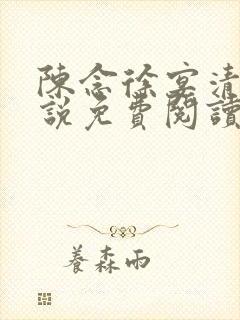 陳念徐宴清
說免費閱讀
養森雨